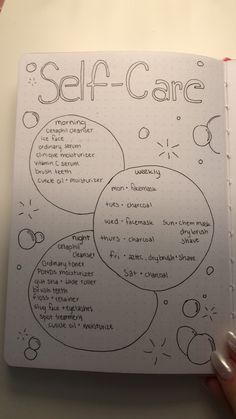 Self-Care
morning
cetaphil cleanser
ice face
ordinary serum
clinique moisturizer
vitamin C serum
brush teeth
cuticle oil + moisturizer
weekly
mon - facemask
tues - charcoal
wed - facemask
thurs - charcoal
fri - aztec, drybrush + shave
sat - charcoal
sun - chem mask
drybrush
shave
night
cetaphil
cleanser
ordinary toner
ponds moisturizer
gua sha + jade roller
brush teeth
floss + retainer
slug face + eyelashes
spot treatment
cuticle oil + moisturize